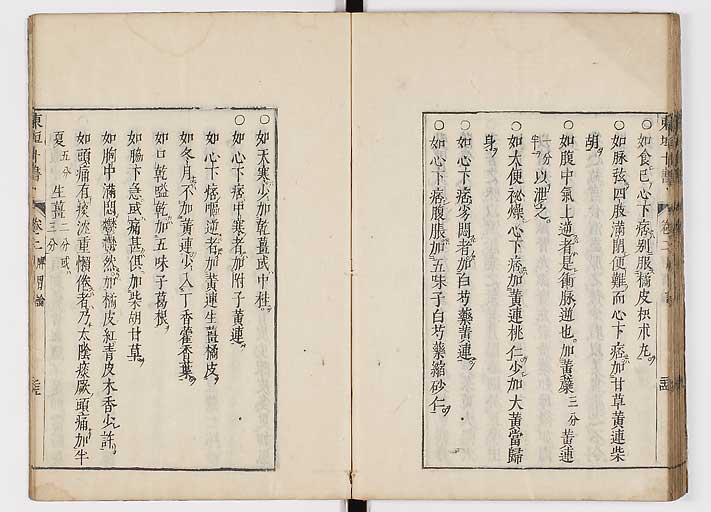 ○如食已心下痞別服橘皮枳朮丸
○如脉弦四肢滿閉便難而心下痞加甘草黃連柴
胡
○如腹中氣上逆者是衝脉逆也加黃蘗三分黃連
一分半以泄之
○如大便祕燥心下痞加黃連桃仁少加大黃當歸
身
○如心下痞夯悶者加白芍藥黃連
○如心下痞腹脹加五味子白芍藥縮砂仁
○如天寒少加乾薑或中桂
○如心下痞中寒者加附子黃連
如心下痞嘔逆者加黃連生薑橘皮
如冬月不加黃連少入丁香藿香葉
如口乾嗌乾加五味子葛根
如脇下急或痛甚俱加柴胡甘草
如胸中滿悶鬱鬱然加橘皮紅青皮木香少許
如頭痛有痰沉重懶倦者乃太陰痰厥頭痛加半
夏五分生薑二分或三分
東垣十書
卷二
脾胃論